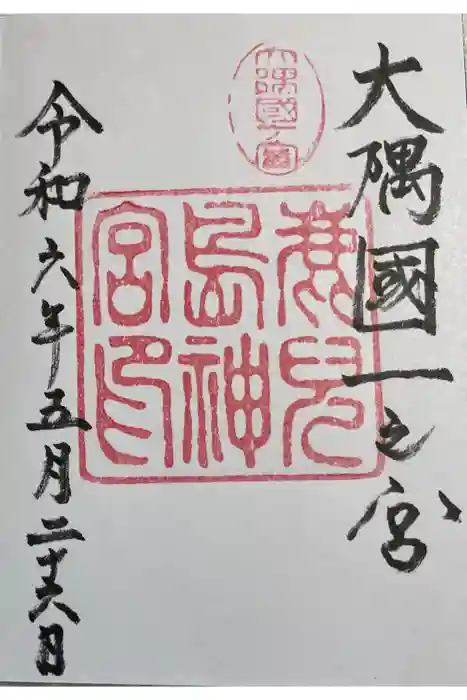 大隅國一之宮
大隅國一宮
鹿兒島神宮印
令和六年五月二十六日